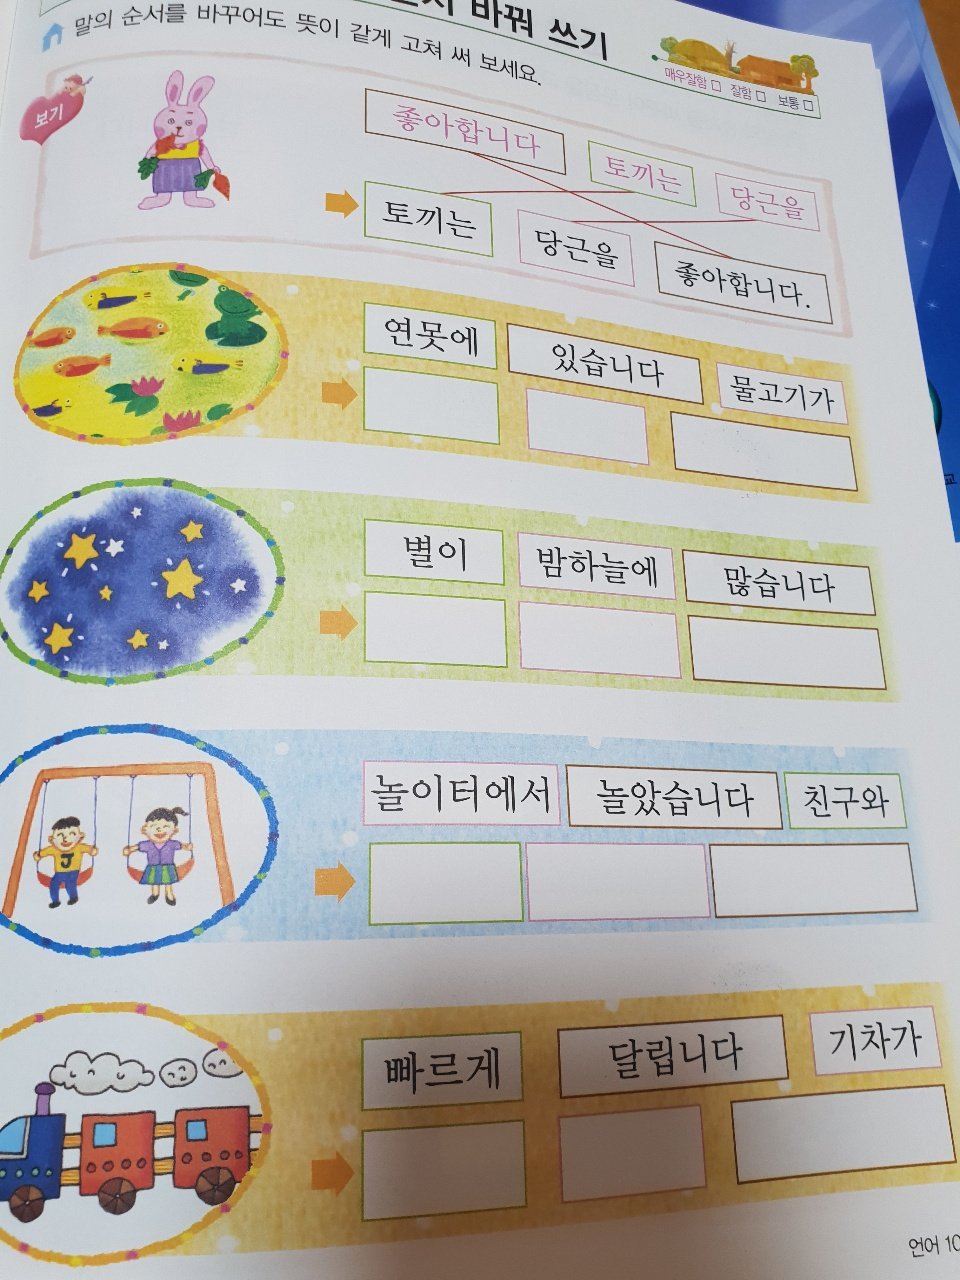 바꿔 쓰기
말의 순서를 바꾸어도 뜻이 같게 고쳐 써 보세요.
매우잘함 □ 잘함 □ 보통 □
보기
좋아합니다 토끼는 당근을
토끼는 당근을 좋아합니다.
연못에 있습니다 물고기가
별이 밤하늘에 많습니다
놀이터에서 놀았습니다 친구와
J
빠르게 달립니다 기차가
언어 10